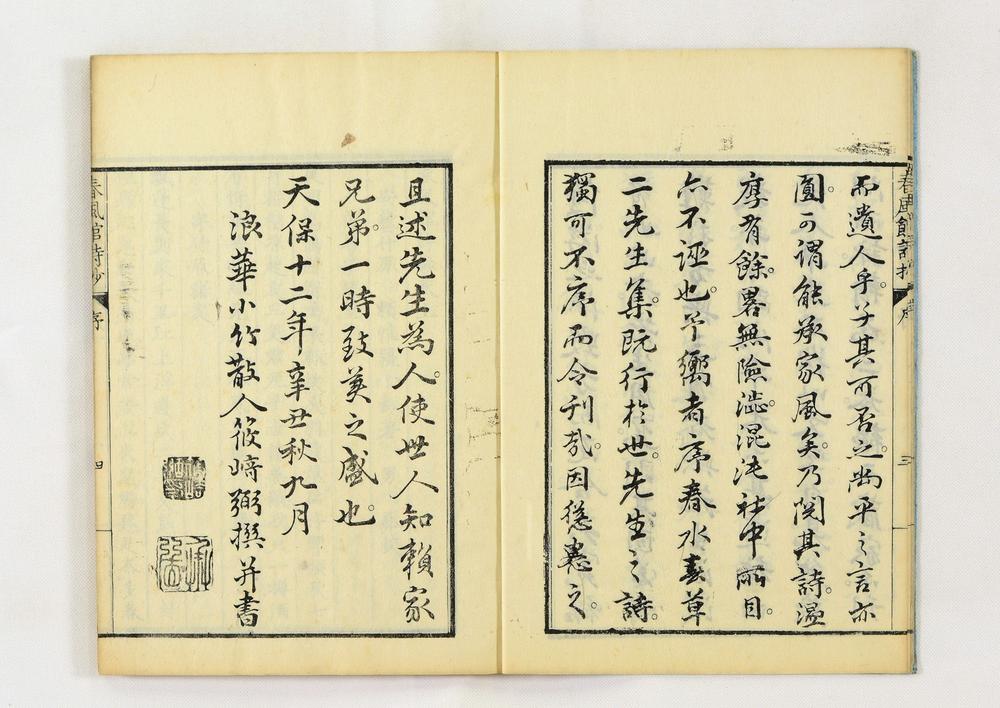 而遺人乎。予其可否之。尚平之言亦
圓。可謂能承家風矣。乃閲其詩。溫
厚有餘。畧無險澁。混沌社中所目。
亦不誣也。予嚮者序春水春草
二先生集。既行於世。先生之詩。
獨可不序而令刊哉。因慫慂之。
且述先生為人。使世人知賴家
兄弟。一時致美之盛也。
天保十二年辛丑秋九月
浪華小竹散人筱﨑弼撰并書
春風館詩抄
序
三
春風館詩抄
序
四